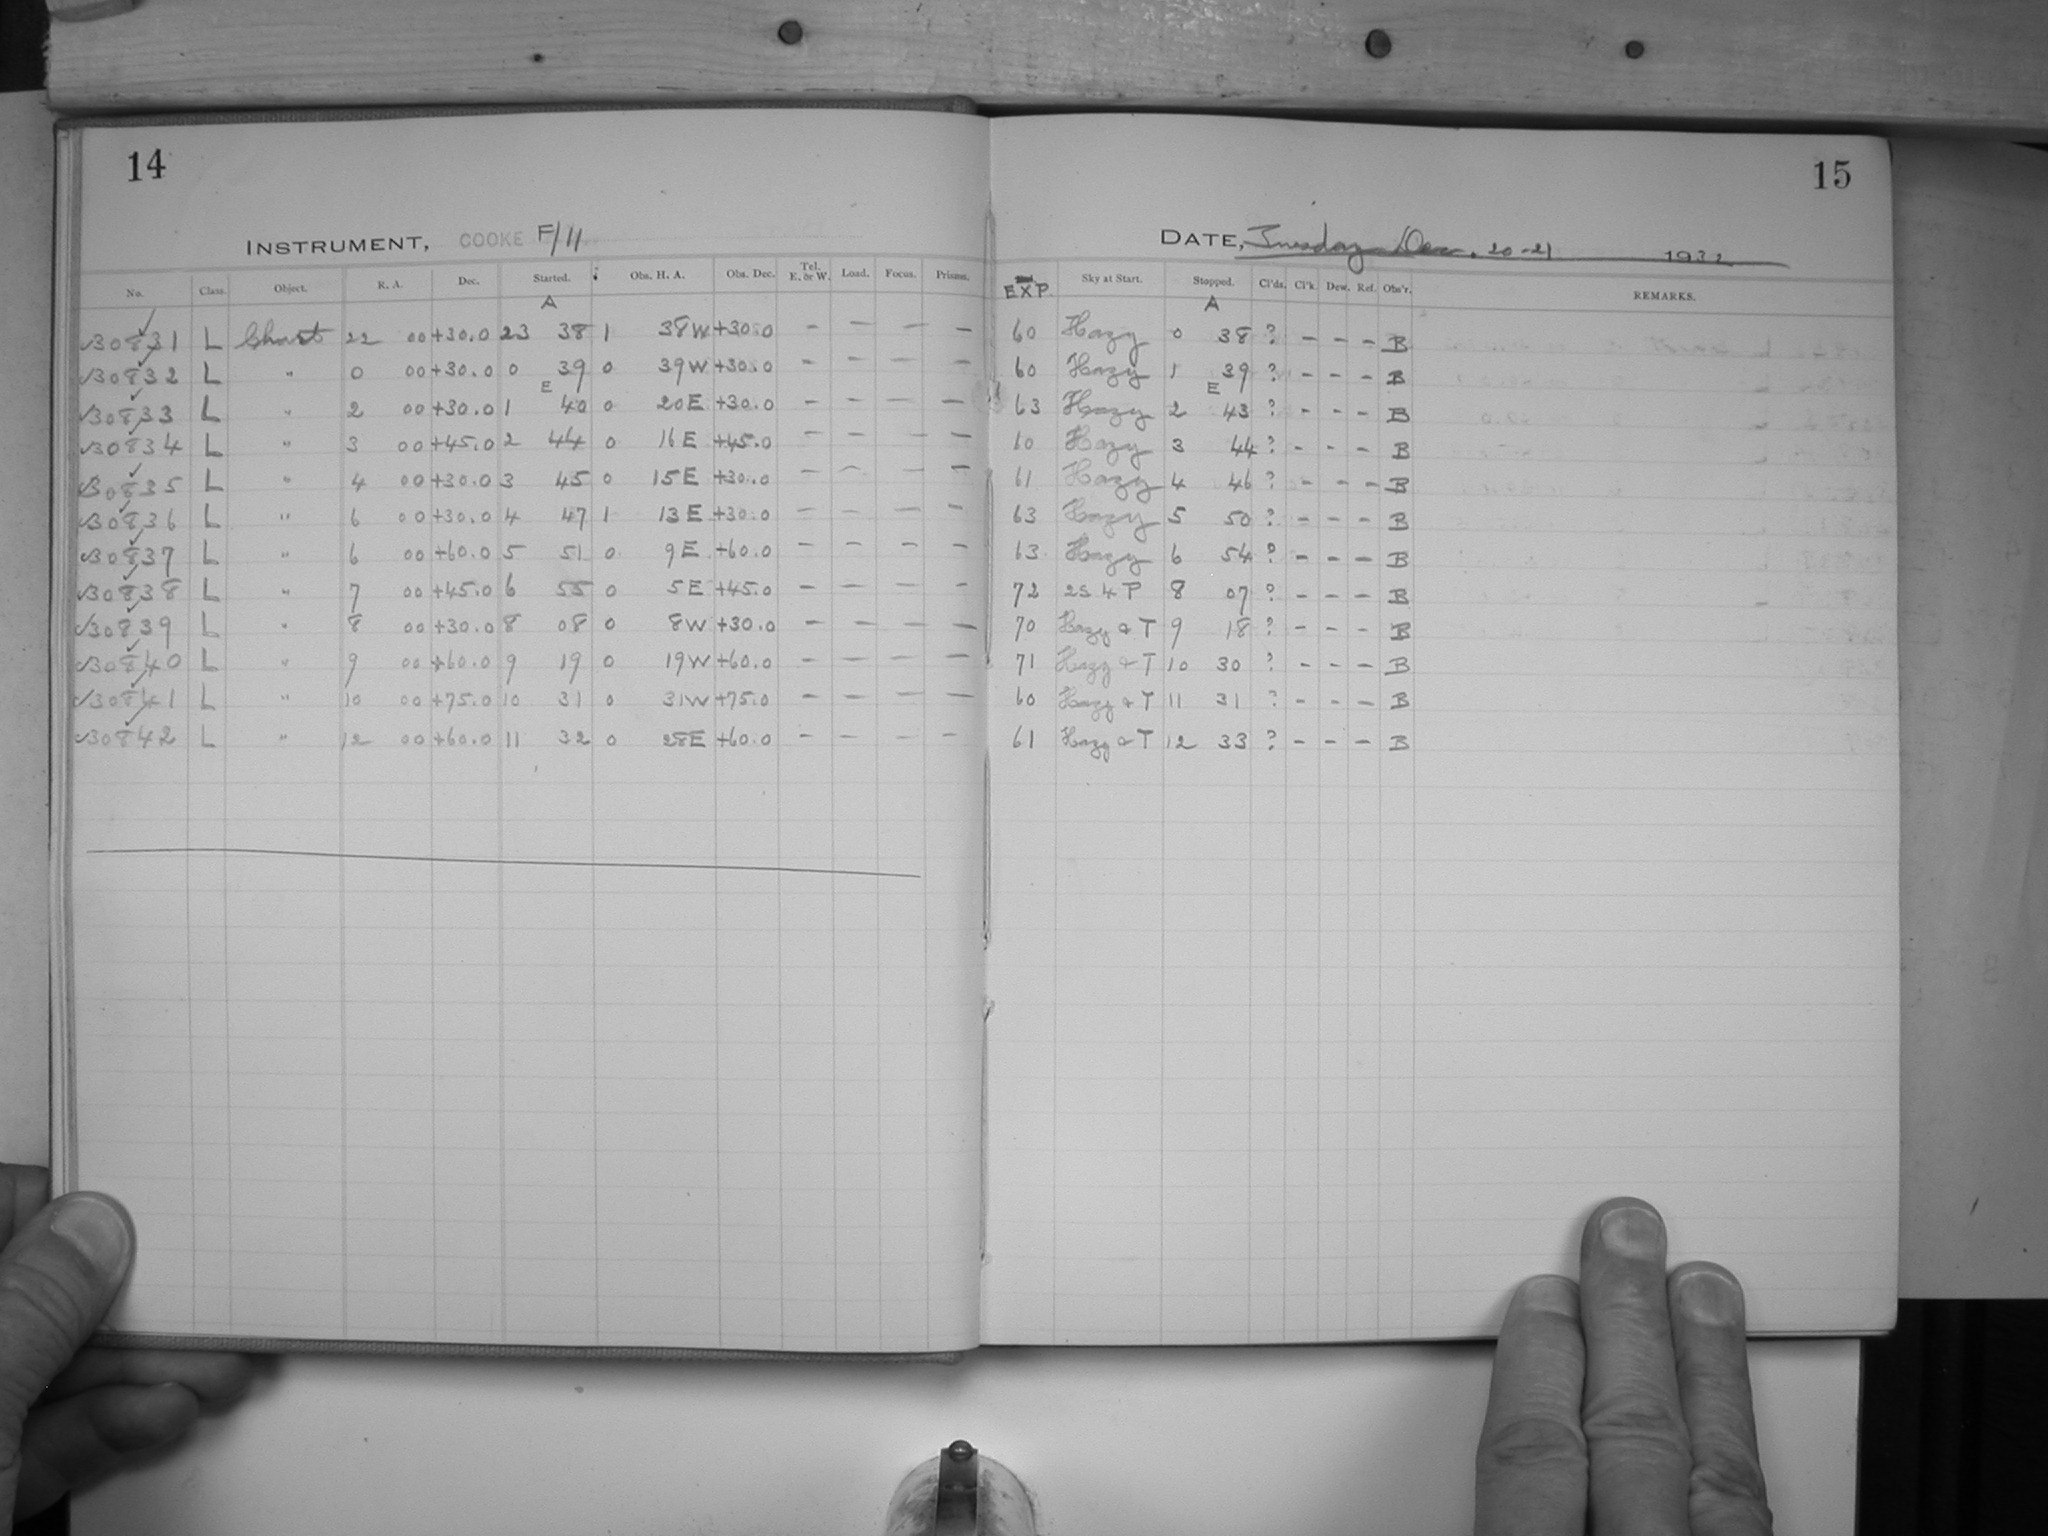 14
INSTRUMENT, COOKE F/11
No. Class. Object. R. A. Dec. Started. Obs. H. A. Obs. Dec. Tel. E. or W. Load. Focus. Prisms.
A
30831 L Chart 22 00 +30.0 23 38 1 38W +30.0 – – – –
30832 L " 0 00 +30.0 0 39 0 39W +30.0 – – – –
E
30833 L " 2 00 +30.0 1 40 0 20E +30.0 – – – –
30834 L " 3 00 +45.0 2 44 0 16E +45.0 – – – –
30835 L " 4 00 +30.0 3 45 0 15E +30.0 – – – –
30836 L " 6 00 +30.0 4 47 1 13E +30.0 – – – –
30837 L " 6 00 +60.0 5 51 0 9E +60.0 – – – –
30838 L " 7 00 +45.0 6 55 0 5E +45.0 – – – –
30839 L " 8 00 +30.0 8 08 0 8W +30.0 – – – –
30840 L " 9 00 +60.0 9 19 0 19W +60.0 – – – –
30841 L " 10 00 +75.0 10 31 0 31W +75.0 – – – –
30842 L " 12 00 +60.0 11 32 0 28E +60.0 – – – –
15
DATE, Tuesday Dec. 20-21 1932
EXP. Sky at Start. Stopped. Cl'ds. Cl'k. Dew. Ref. Obs'r. REMARKS.
A
60 Hazy 0 38 ? – – – B
60 Hazy 1 39 ? – – – B
E
63 Hazy 2 43 ? – – – B
60 Hazy 3 44 ? – – – B
61 Hazy 4 46 ? – – – B
63 Hazy 5 50 ? – – – B
63 Hazy 6 54 ? – – – B
72 2S 4 P 8 07 ? – – – B
70 Hazy & T 9 18 ? – – – B
71 Hazy & T 10 30 ? – – – B
60 Hazy & T 11 31 ? – – – B
61 Hazy & T 12 33 ? – – – B